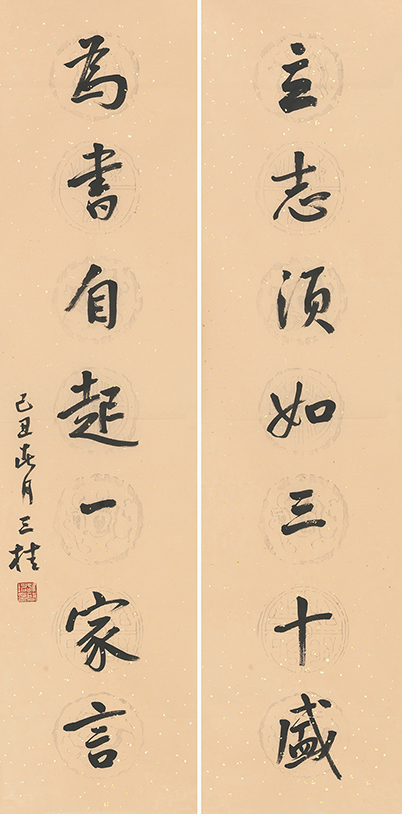 立志須如三十盛
為書自起一家言
己丑春月三桂